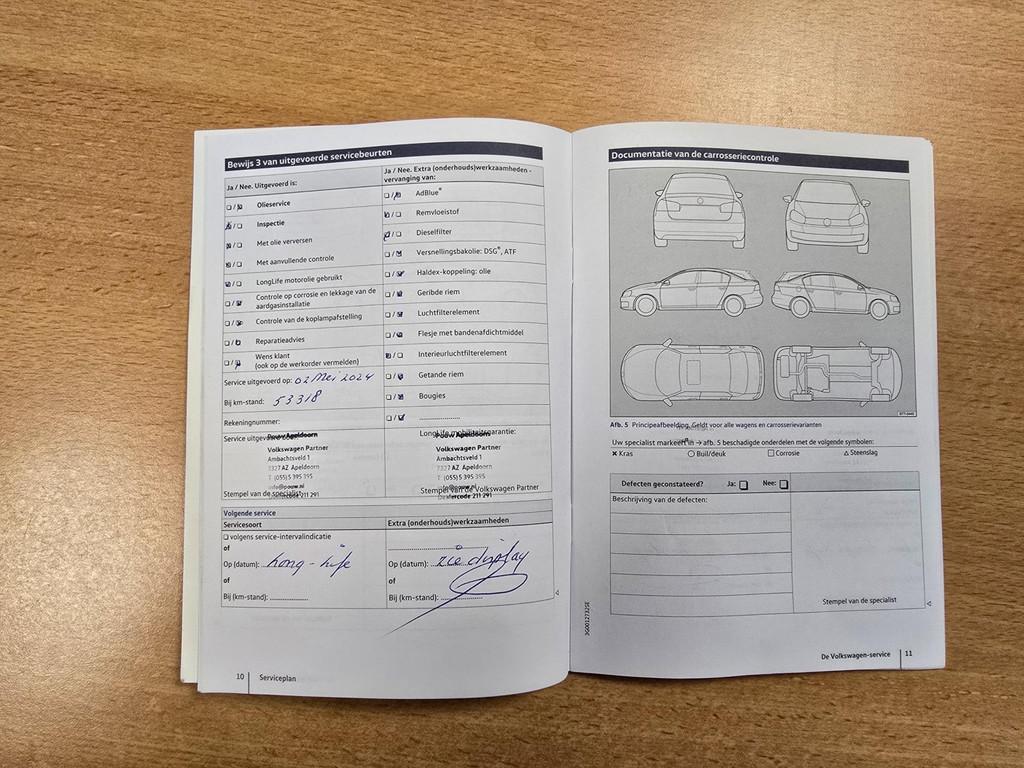 Bewijs 3 van uitgevoerde servicebeurten
Ja / Nee. Uitgevoerd is:
Olieservice
Inspectie
Met olie verversen
Met aanvullende controle
LongLife motorolie gebruikt
Controle op corrosie en lekkage van de
aardgasinstallatie
Controle van de koplampafstelling
Reparatieadvies
Wens klant
(ook op de werkorder vermelden)
Service uitgevoerd op: 02 Mei 2024
Bij km-stand: 53318
Rekeningnummer:
Service uitgevoerd
Pouw Apeldoorn
Volkswagen Partner
Ambachtsveld 1
7327 AZ Apeldoorn
T (055) 5 395 395
info@pouw.nl
Dealercode 211 291
Stempel van de specialist
Ja / Nee. Extra (onderhouds)werkzaamheden -
vervanging van:
AdBlue®
Remvloeistof
Dieselfilter
Versnellingsbakolie: DSG®, ATF
Haldex-koppeling: olie
Geribde riem
Luchtfilterelement
Flesje met bandenafdichtmiddel
Interieurluchtfilterelement
Getande riem
Bougies
LongLife mobiliteitsgarantie:
Pouw Apeldoorn
Volkswagen Partner
Ambachtsveld 1
7327 AZ Apeldoorn
T (055) 5 395 395
info@pouw.nl
Dealercode 211 291
Stempel van de Volkswagen Partner
Volgende service
Servicesoort
volgens service-intervalindicatie
of
Op (datum): Long-life
of
Bij (km-stand):
Extra (onderhouds)werkzaamheden
Op (datum): zie display
of
Bij (km-stand):
10 Serviceplan
Documentatie van de carrosseriecontrole
Afb. 5 Principeafbeelding. Geldt voor alle wagens en carrosserievarianten
Uw specialist markeert in → afb. 5 beschadigde onderdelen met de volgende symbolen:
× Kras ○ Buil/deuk □ Corrosie △ Steenslag
Defecten geconstateerd? Ja: Nee:
Beschrijving van de defecten:
Stempel van de specialist
3G0012732SE
De Volkswagen-service 11